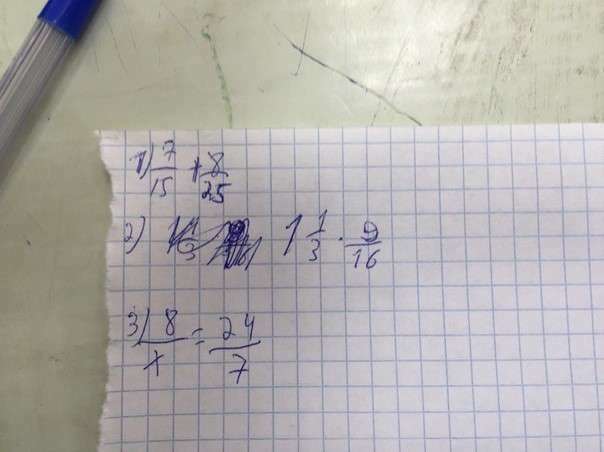 1) 7/15 + 8/25
2) 1 1/3 · 9/16
3) 8/x = 24/7